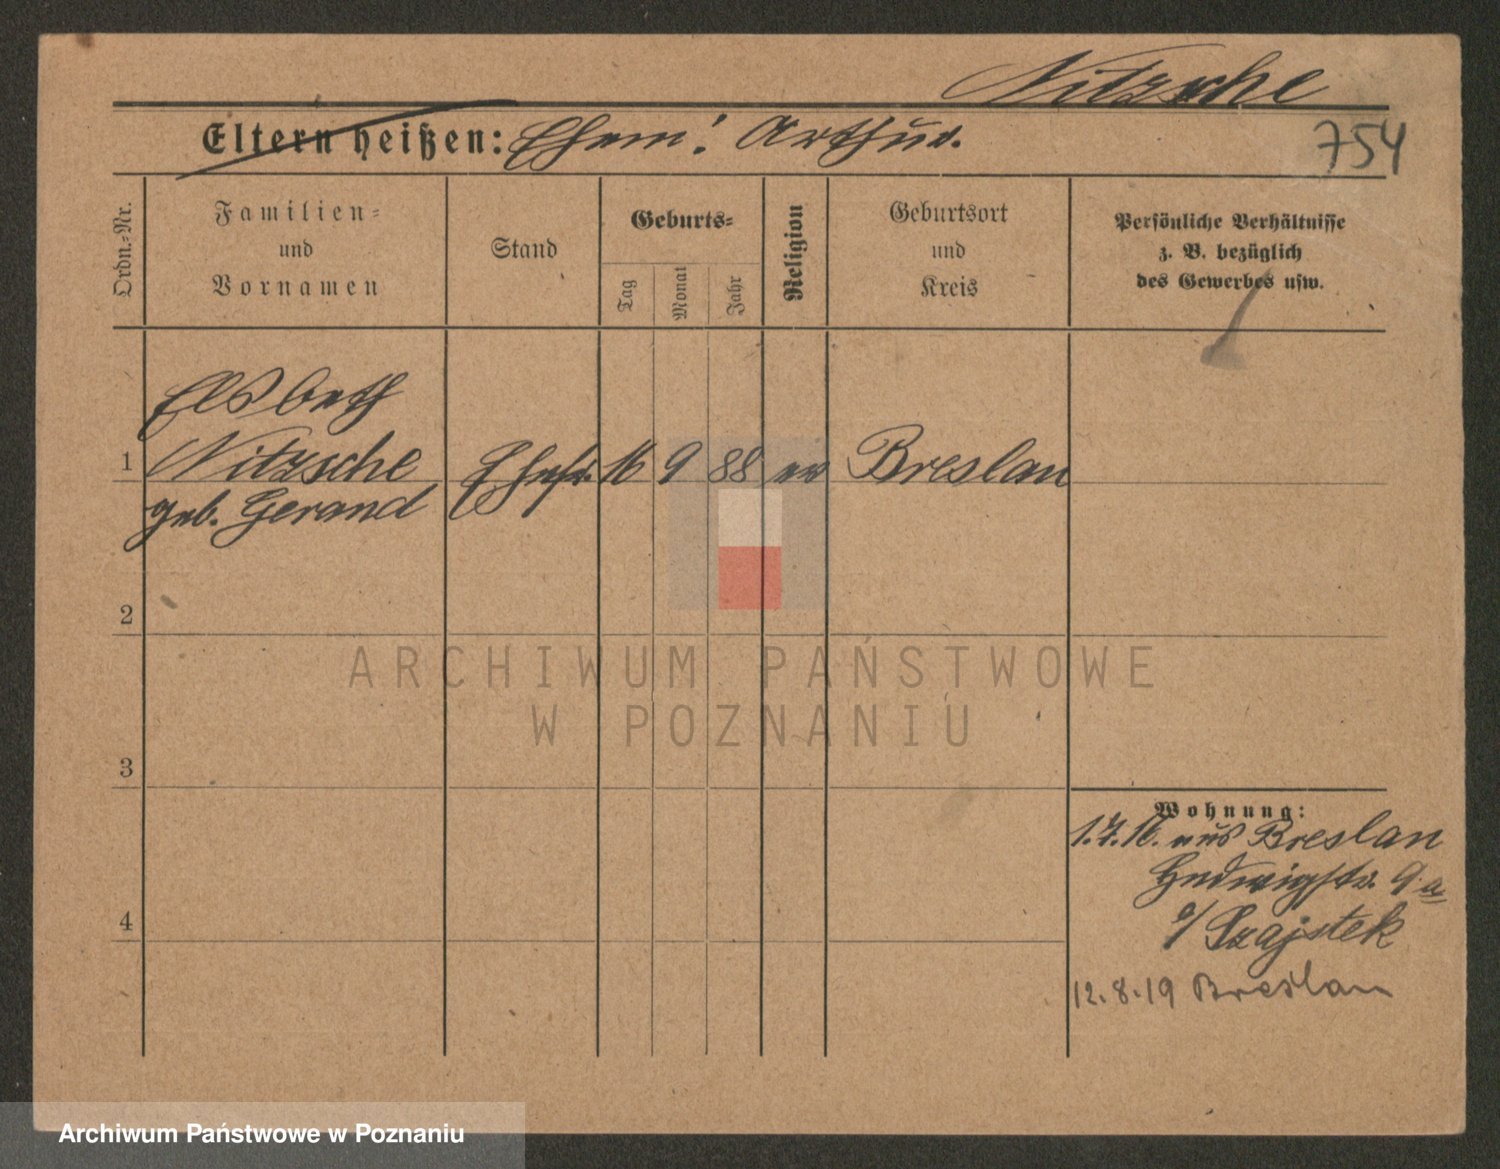 Nitzsche
Eltern heißen: Ehem: Arthur.
754
Ordn.-Nr.
Familien-
und
Vornamen
Stand
Geburts-
Tag
Monat
Jahr
Religion
Geburtsort
und
Kreis
Persönliche Verhältnisse
z. B. bezüglich
des Gewerbes usw.
Elsbeth
1 Nitzsche Ehefr. 16 9 88 ev Breslau
geb. Gerand
2
ARCHIWUM PAŃSTWOWE
W POZNANIU
3
Wohnung:
1.7.16. aus Breslau
Hedwigstr. 9a
b/ Szajstek
4
12.8.19 Breslau
Archiwum Państwowe w Poznaniu